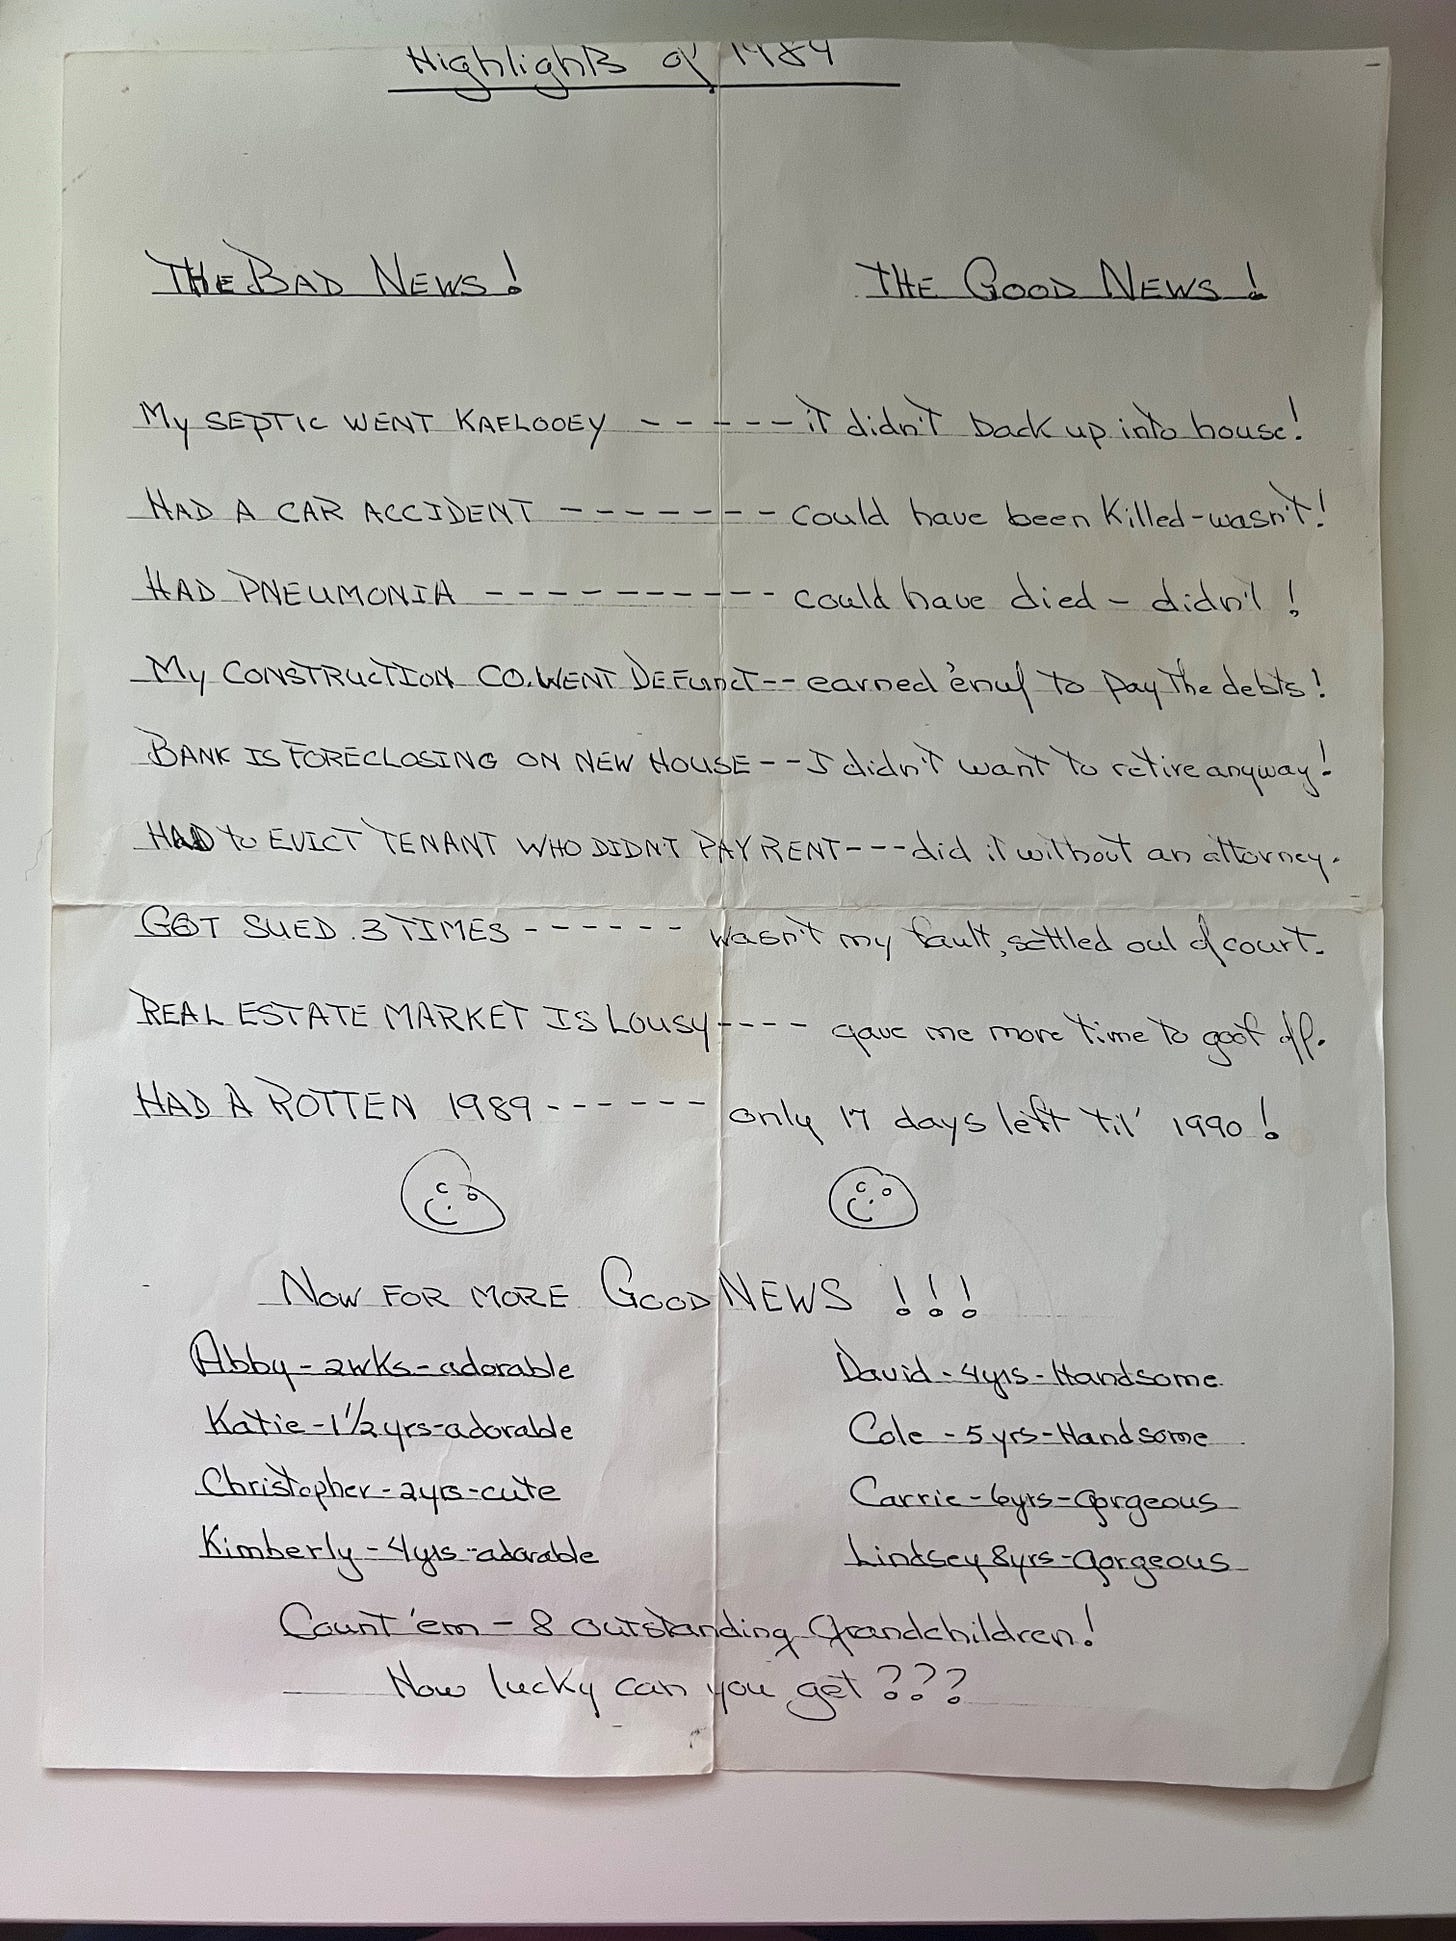 Highlights of 1989
THE BAD NEWS! THE GOOD NEWS!
My SEPTIC WENT KAFLOOEY - - - - - it didn't back up into house!
HAD A CAR ACCIDENT - - - - - - - could have been killed - wasn't!
HAD PNEUMONIA - - - - - - - - - - could have died - didn't!
My CONSTRUCTION CO. WENT DEFUNCT - - earned 'enuf to pay the debts!
BANK IS FORECLOSING ON NEW HOUSE - - I didn't want to retire anyway!
HAD to EVICT TENANT WHO DIDNT PAY RENT - - - did it without an attorney.
GOT SUED 3 TIMES - - - - - - wasn't my fault, settled out of court.
REAL ESTATE MARKET IS LOUSY - - - - gave me more time to goof off.
HAD A ROTTEN 1989 - - - - - - only 17 days left 'til' 1990!
NOW FOR MORE GOOD NEWS !!!
Abby - 2wks - adorable David - 4yrs - Handsome
Katie - 1 1/2 yrs - adorable Cole - 5 yrs - Handsome
Christopher - 2yrs - cute Carrie - 6yrs - Gorgeous
Kimberly - 4yrs - adorable Lindsey 8yrs - Gorgeous
Count 'em - 8 outstanding Grandchildren!
How lucky can you get???